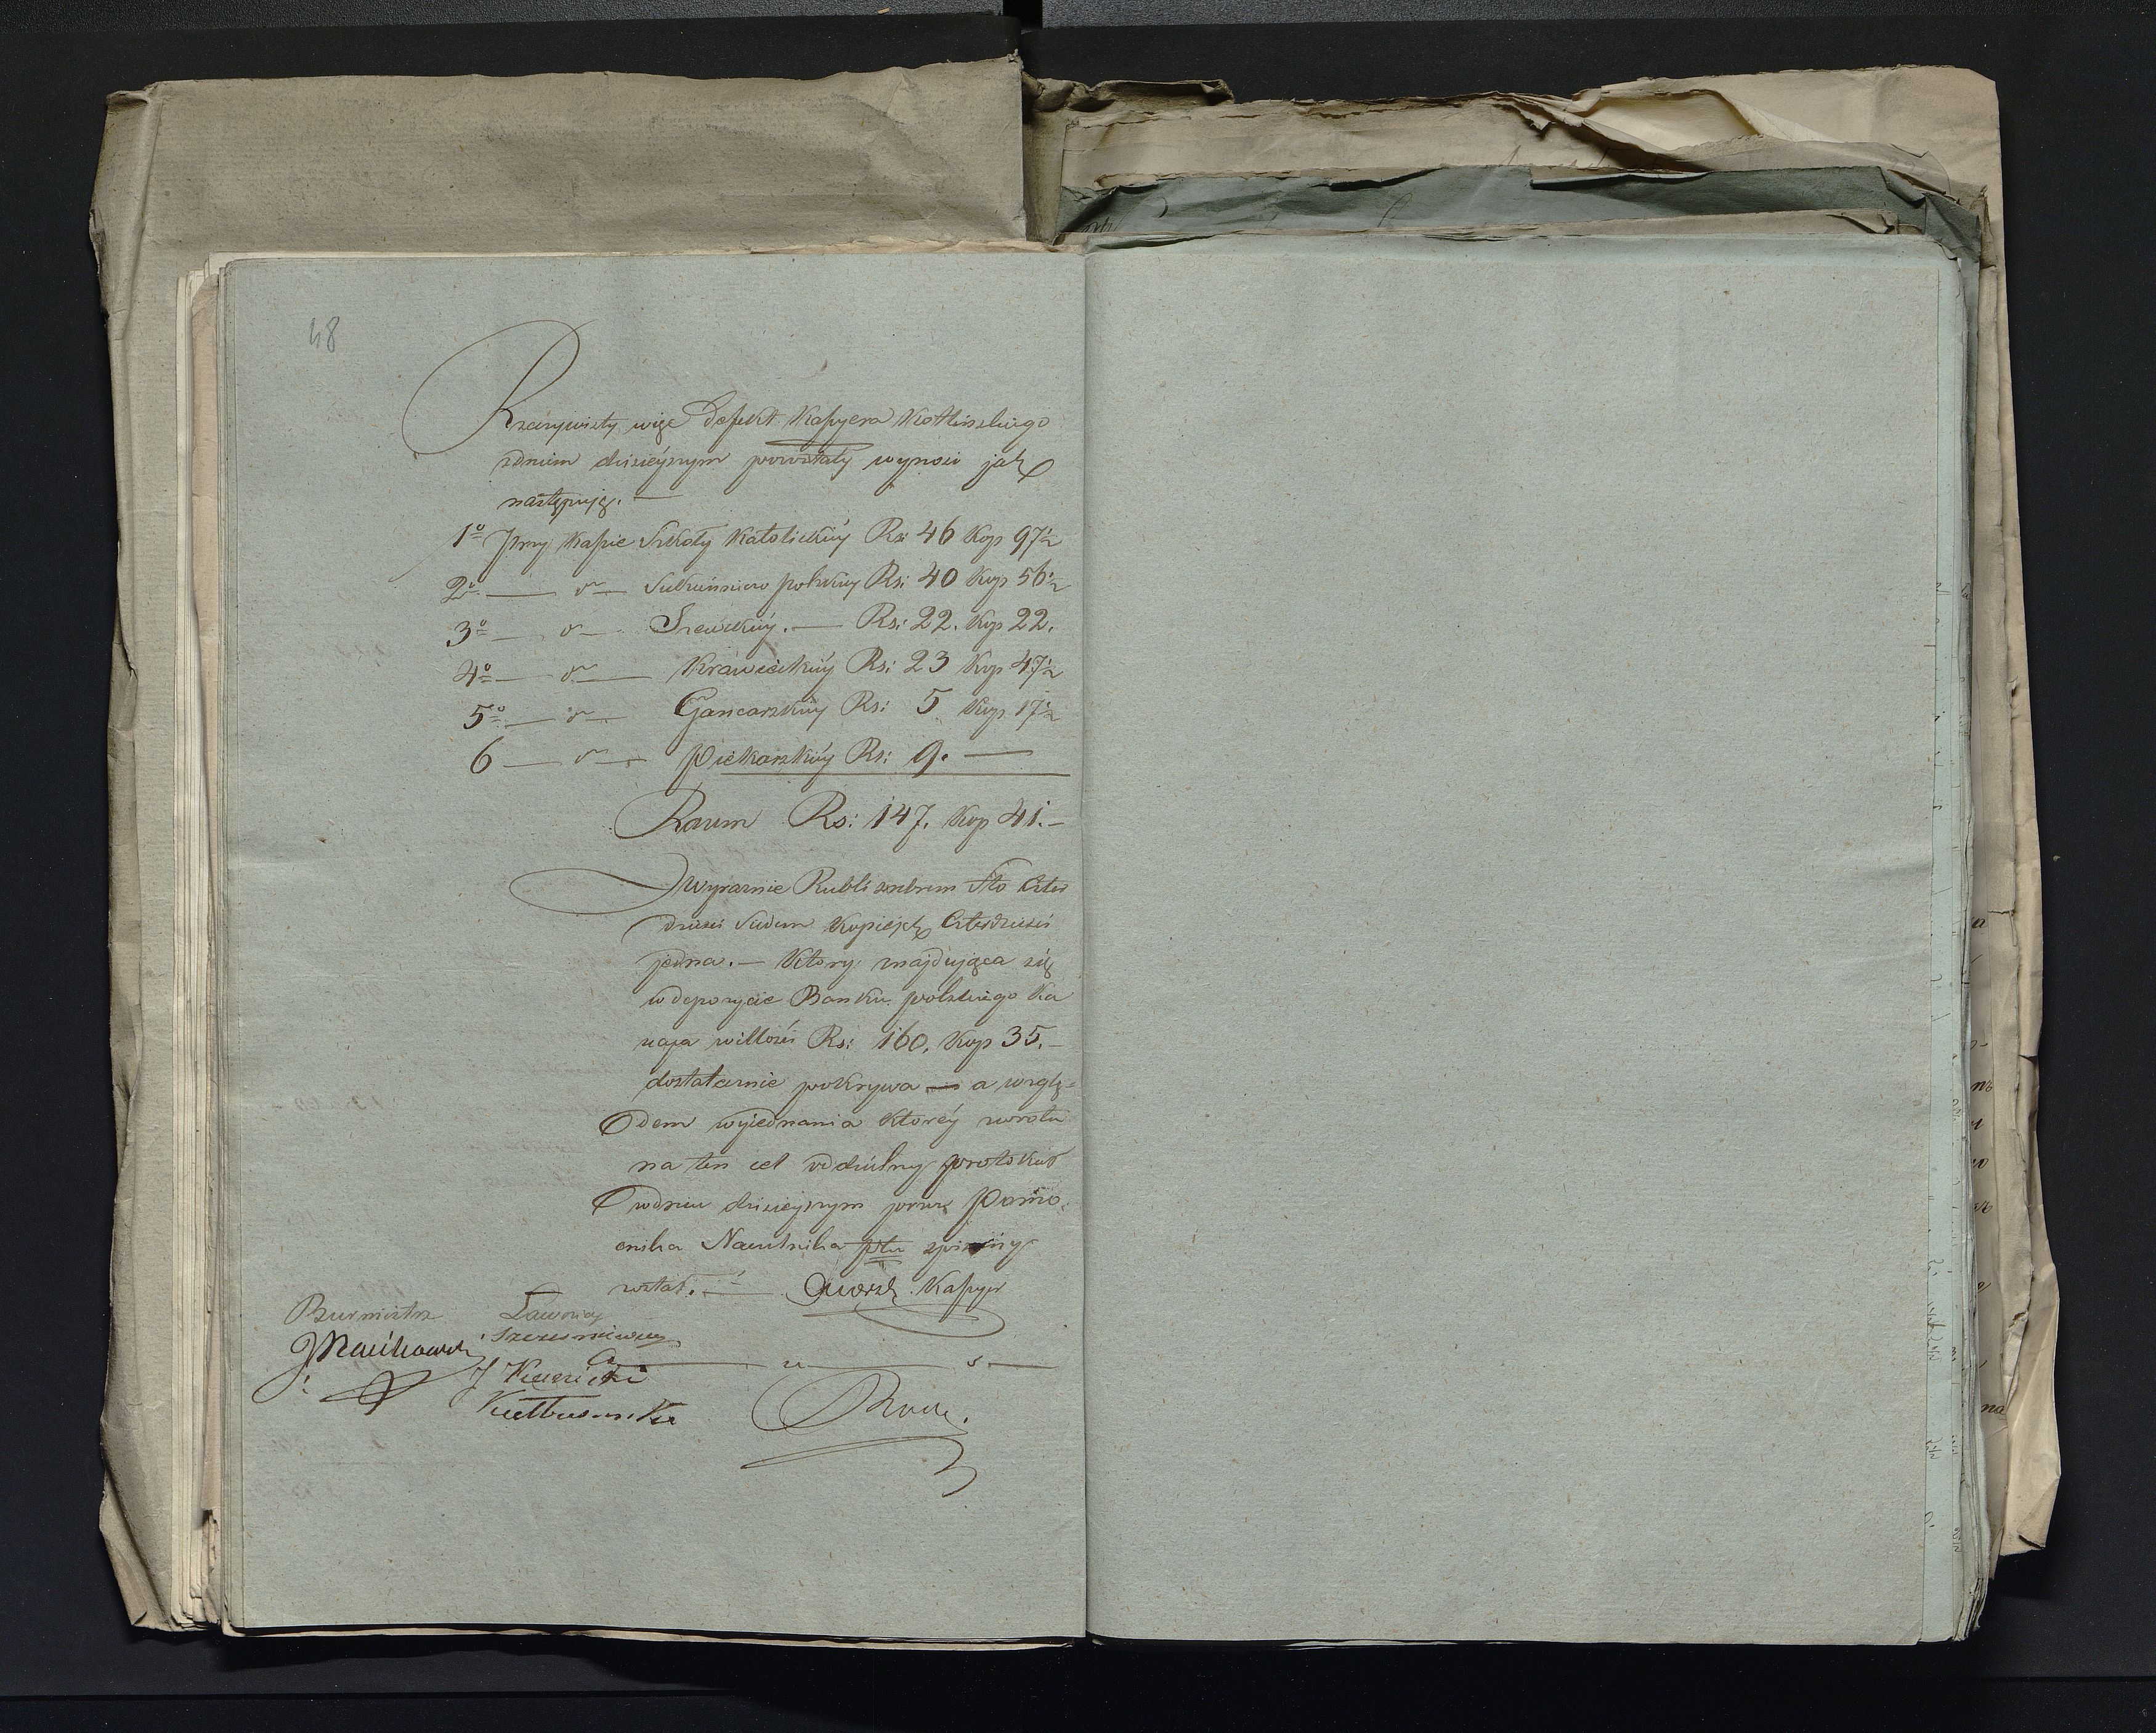 48
Rzeczywisty więc Defekt Kassyera Kotlińskiego
z dniem dzisieyszym pozostały wynosi jak
następuję. —
1º Przy Kassie Szkoły Katolickiéy Rs: 46 Kop 97½
2º — " — Sukienniczo polskiey Rs: 40 Kop 56½
3º — " — Szewckiéy. — Rs: 22. Kop 22.
4º — " — Krawieckiéy Rs: 23 Kop 47½
5º — " — Gancarskiéy Rs: 5 Kop 17½
6 — " — Piekarskiéy Rs: 9. —
Razem Rs: 147. Kop 41. —
Wyraznie Rubli srebrem Sto Czter
dzieści Siedem Kopiejek Czterdzieści
jedna. — Który znajdująca się
w depozycie Banku polskiego Ka
ucya w ilłości Rs: 160. Kop 35. —
dostatecznie pokrywa — a wzglę-
dem wyjednania któréy zwrotu
na ten cel oddzielny protokuł
w dniu dzisieyszym przez Pomo-
cnika Naczelnika ptu spisany
został. — Kassyer
Burmistrz Ławnicy
Szczesniewicz
J Kuczicki